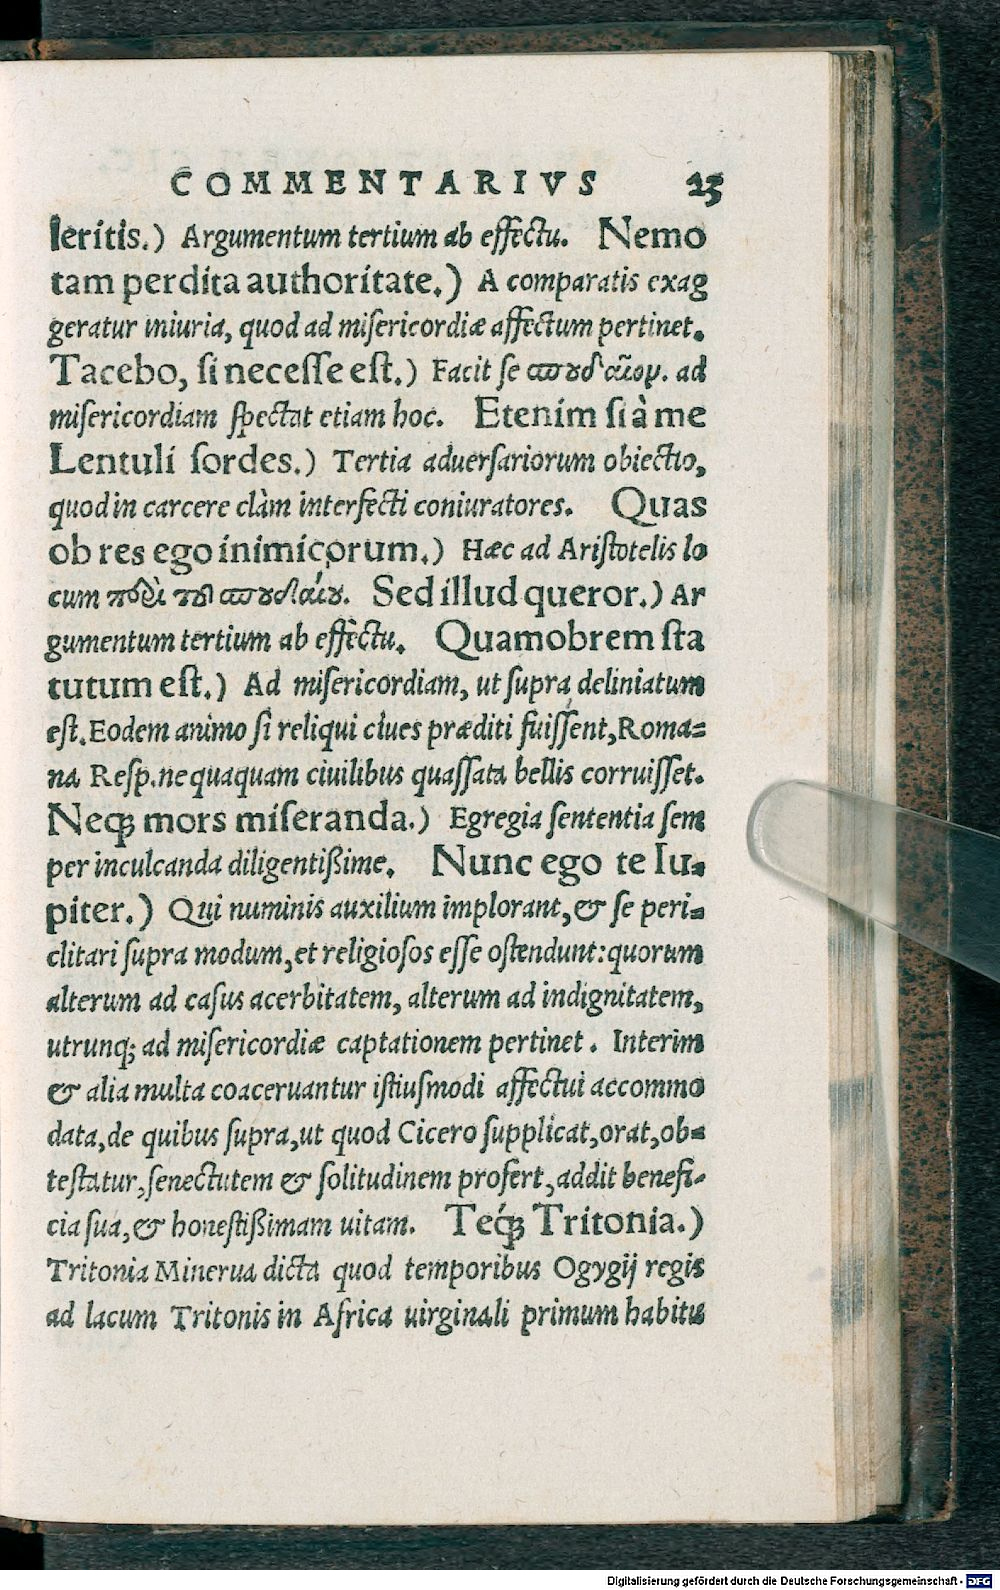 COMMENTARIVS 23
leritis.) Argumentum tertium ab effectu. Nemo
tam perdita authoritate.) A comparatis exag
geratur iniuria, quod ad misericordiæ affectum pertinet.
Tacebo, si necesse est.) Facit se σπουδαῖον. ad
misericordiam spectat etiam hoc. Etenim si à me
Lentuli sordes.) Tertia aduersariorum obiectio,
quod in carcere clàm interfecti coniuratores. Quas
ob res ego inimicorum.) Hæc ad Aristotelis lo
cum Sed illud queror.) Ar
gumentum tertium ab effectu. Quamobrem sta
tutum est.) Ad misericordiam, ut supra deliniatum
est. Eodem animo si reliqui ciues præditi fuissent, Roma-
na Resp. nequaquam ciuilibus quassata bellis corruisset.
Neq; mors miseranda.) Egregia sententia sem
per inculcanda diligentißime. Nunc ego te Iu-
piter.) Qui numinis auxilium implorant, & se peri-
clitari supra modum, et religiosos esse ostendunt: quorum
alterum ad casus acerbitatem, alterum ad indignitatem,
utrunq; ad misericordiæ captationem pertinet. Interim
& alia multa coaceruantur istiusmodi affectui accommo
data, de quibus supra, ut quod Cicero supplicat, orat, ob-
testatur, senectutem & solitudinem profert, addit benefi-
cia sua, & honestißimam uitam. Teq́; Tritonia.)
Tritonia Minerua dicta quod temporibus Ogygij regis
ad lacum Tritonis in Africa uirginali primum habitu
Digitalisierung gefördert durch die Deutsche Forschungsgemeinschaft - DFG